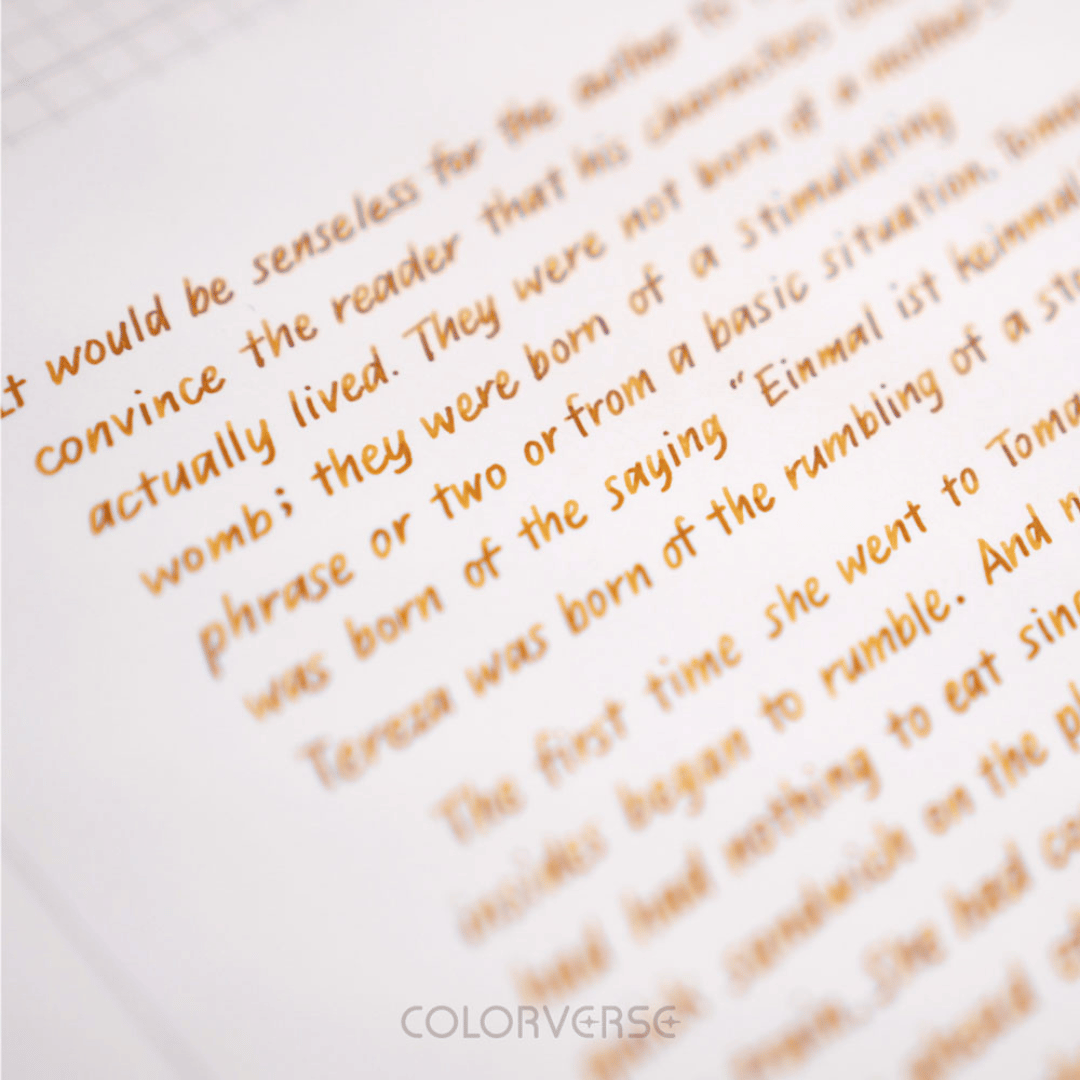 It would be senseless for the author to
convince the reader that his characters
actually lived. They were not born of a mother's
womb; they were born of a stimulating
phrase or two or from a basic situation. Tomas
was born of the saying "Einmal ist keinmal
Tereza was born of the rumbling of a
The first time she went to
insides began to rumble. And
had had nothing to eat
quick sandwich on the
again. She had
COLORVERSE